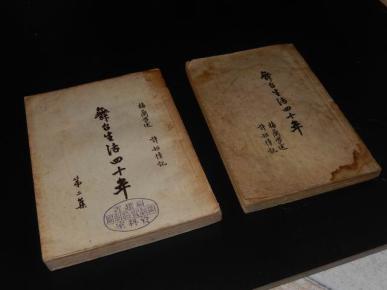 舞台生活四十年
梅蘭芳述
許姬傳記
第二集
舞台生活四十年
梅蘭芳述
許姬傳記